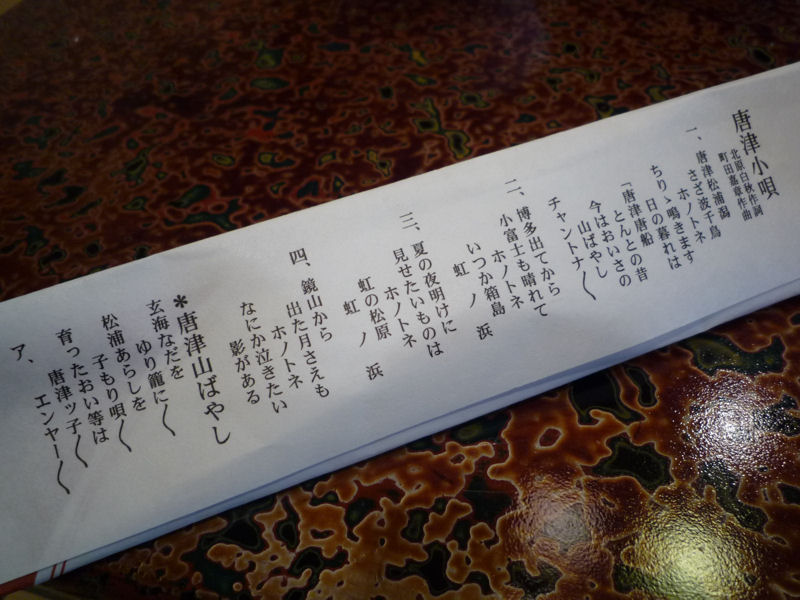 唐津小唄
北原白秋作詞
町田嘉章作曲
一、唐津松浦潟
さざ波千鳥
ホノトネ
ちりゝ鳴きます
日の暮れは
「唐津唐船
とんとの昔
今はおいさの
山ばやし
チャントナ〱
二、博多出てから
小富士も晴れて
ホノトネ
いつか箱島
虹ノ浜
三、夏の夜明けに
見せたいものは
ホノトネ
虹の松原
虹ノ浜
四、鏡山から
出た月さえも
ホノトネ
なにか泣きたい
影がある
＊唐津山ばやし
玄海なだを
ゆり籠に〱
松浦あらしを
子もり唄〱
育ったおい等は
唐津ッ子〱
ア、エンヤー〱